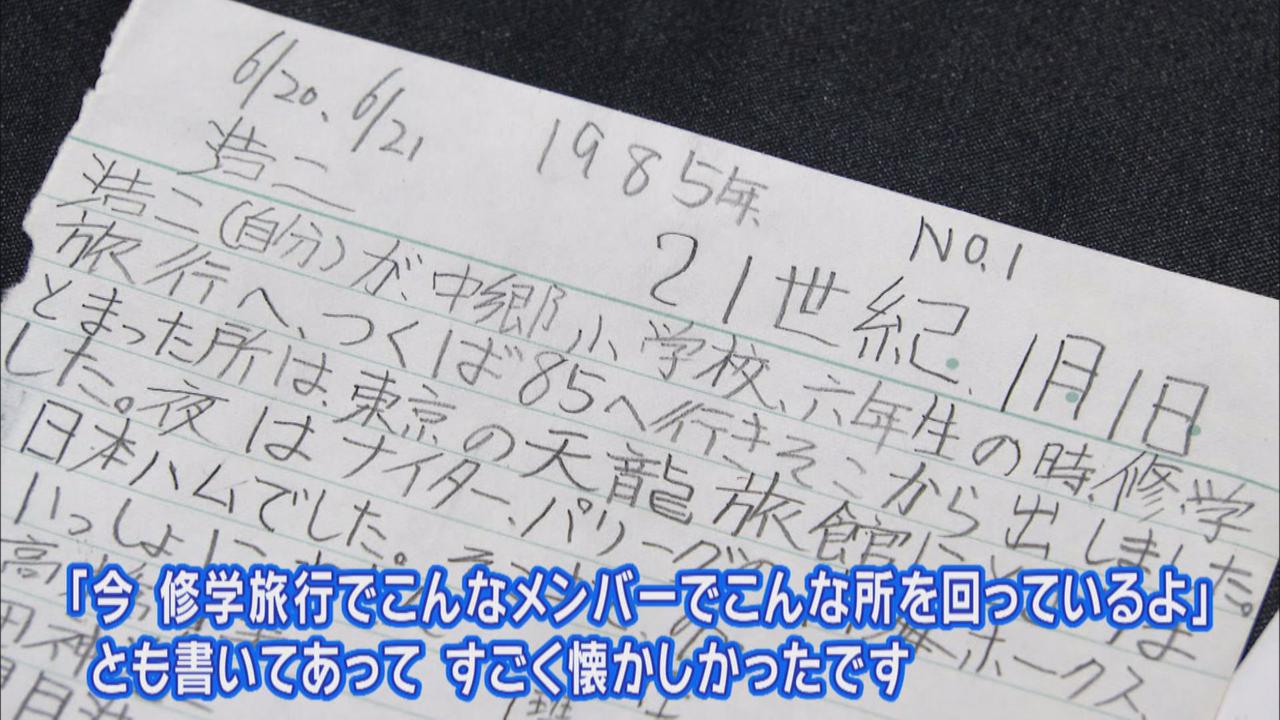 6/20、6/21
1985年
浩二
NO.1
21世紀、1月1日
浩二(自分)が、中郷小学校、六年生の時、修学
旅行へ、つくば'85へ行きそこから出しました。
とまった所は、東京の天龍旅館に
した。夜はナイター、パリーグの ホークス、
日本ハムでした。
いっしょに
高
田神
「今 修学旅行でこんなメンバーでこんな所を回っているよ」
とも書いてあって すごく懐かしかったです